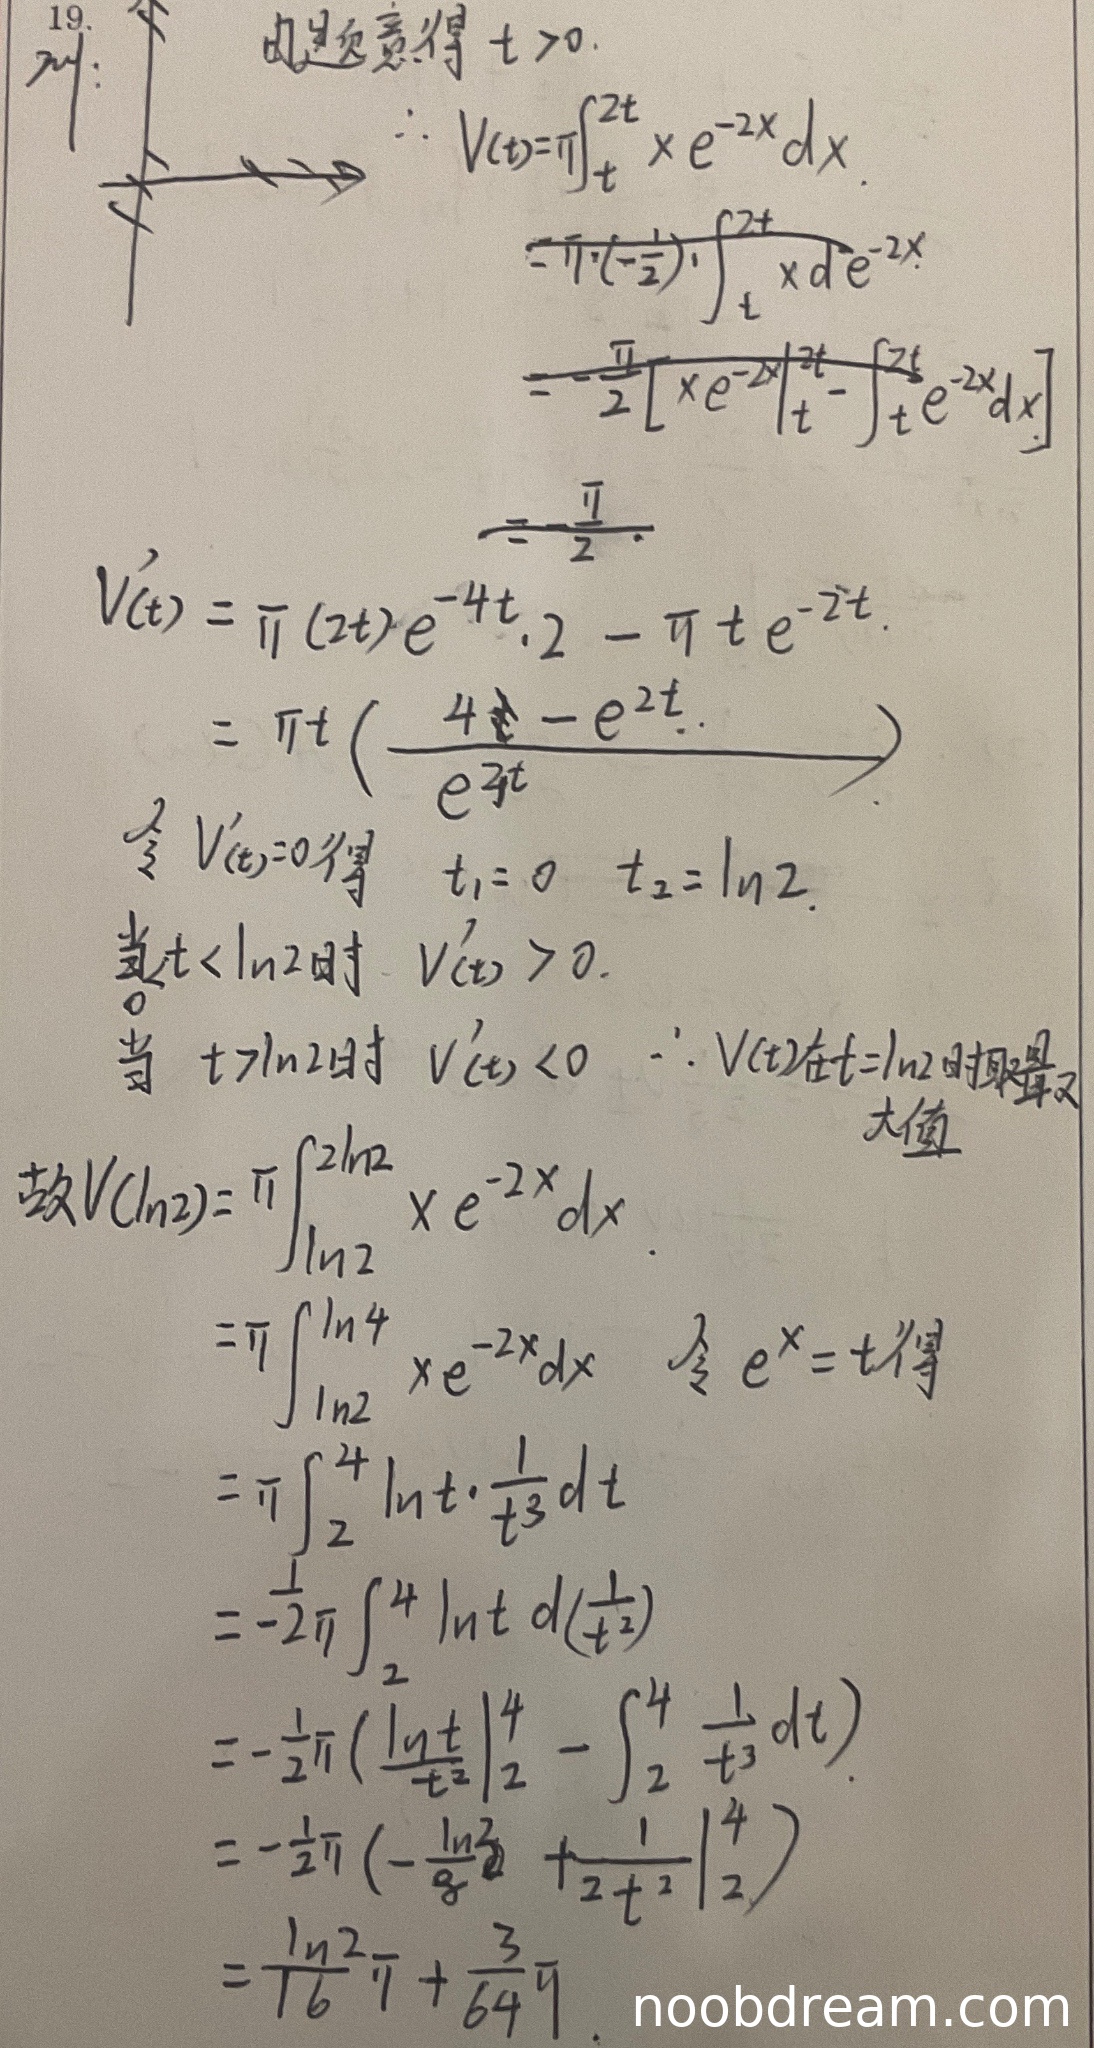 19.
解:
由题意得 t>0.
∴ V(t)=π∫_t^{2t} x e^{-2x} dx.
=π·(-1/2)·∫_t^{2t} x d e^{-2x}
= -π/2 [x e^{-2x}|_t^{2t} - ∫_t^{2t} e^{-2x} dx]
= -π/2 ·
V'(t) = π(2t) e^{-4t}·2 - π t e^{-2t}.
= πt ( (4 - e^{2t}) / e^{4t} ).
令 V'(t)=0得 t₁=0 t₂=ln2.
当0<t<ln2时 V'(t)>0.
当 t>ln2时 V'(t)<0 ∴ V(t)在t=ln2时取最
大值
故V(ln2)=π∫_{ln2}^{2ln2} x e^{-2x} dx.
=π∫_{ln2}^{ln4} x e^{-2x} dx 令 e^x = t得
=π∫_2^4 ln t · 1/t³ dt
= -1/2 π ∫_2^4 ln t d(1/t²)
= -1/2 π ( ln t/t² |_2^4 - ∫_2^4 1/t³ dt ).
= -1/2 π ( -ln2/8 + 1/(2t²) |_2^4 )
= ln2/16 π + 3/64 π.
noobdream.com